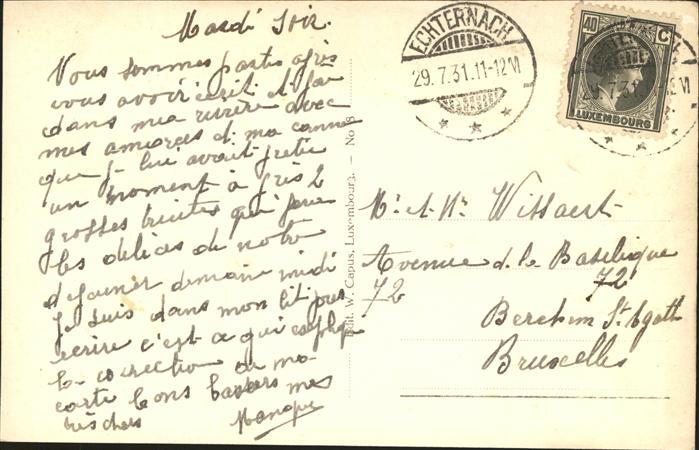 Mardi Soir.
Vous sommes partis après
vous avoir écrit et
dans ma rivière avec
mes amorces et ma canne
que je lui avait prêté
un moment à pris 2
grosses truites qui
les délices de notre
dejeuner demain midi
Je suis dans mon lit pour
écrire c'est ce qui explique
la correction de ma
carte bons baisers mes
très chers
Edit. W. Capus, Luxembourg. — No
ECHTERNACH
29.7.31.11-12V
40 C
LUXEMBOURG
Mr. et Me. Wittaert
Avenue de la Basilique
72 72
Berchem St. Agath
Bruxelles